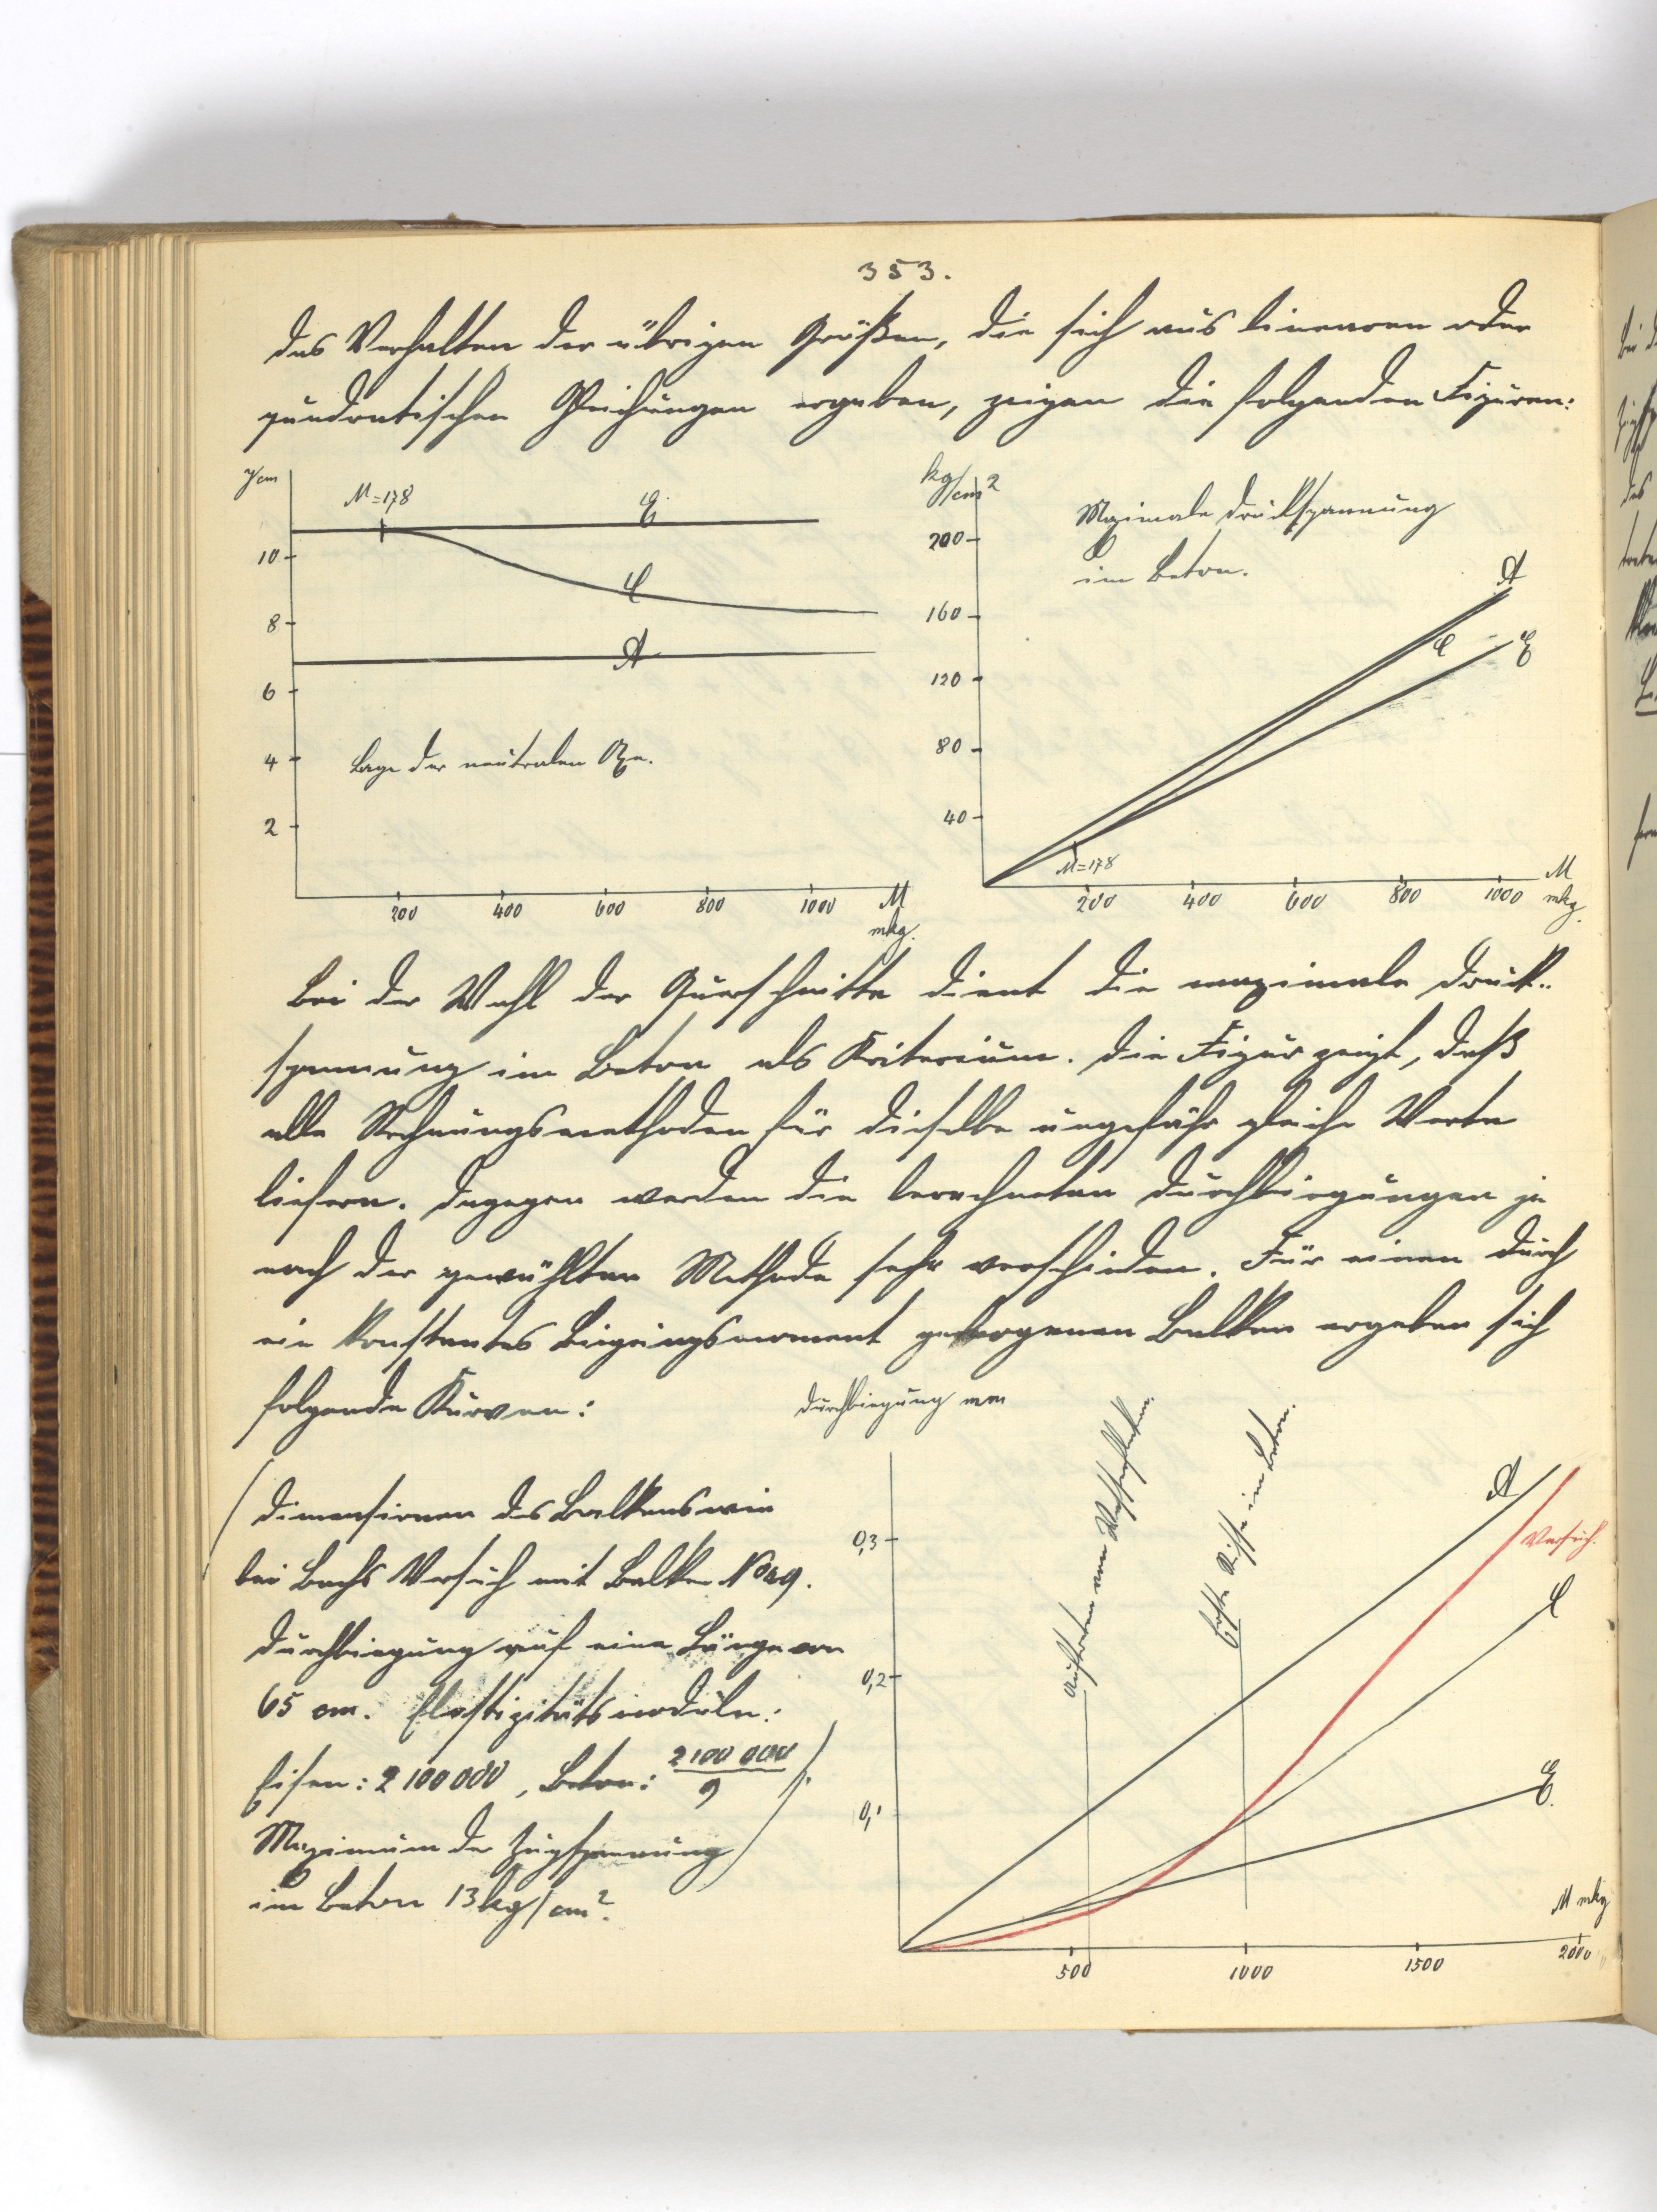 353.
das Verhalten der übrigen Größen, die sich aus linearen oder
quadratischen Gleichungen ergeben, zeigen die folgenden Figuren:
y cm
M=178
E
C
A
10
8
6
4
2
Lage der neutralen Axe.
200 400 600 800 1000 M
mkg.
kg/cm2
Maximale Druckspannung
im Beton.
200
160
120
80
40
A
C
E
M=178
200 400 600 800 1000 M
mkg.
Bei der Wahl der Querschnitte dient die maximale Druck-
spannung im Beton als Kriterium. Die Figur zeigt, daß
alle Rechnungsmethoden für dieselbe ungefähr gleiche Werte
liefern. Dagegen werden die berechneten Durchbiegungen je
nach der gewählten Methode sehr verschieden. Für einen durch
ein konstantes Biegungsmoment gebogenen Balken ergeben sich
folgende Kurven:
(Dimensionen des Balkens wie
bei Bachs Versuch mit Balken No 29.
Durchbiegung auf eine Länge von
65 cm. Elastizitätsmoduln:
Eisen: 2 100 000, Beton: 2 100 000 / 9).
Maximum der Zugspannung
im Beton 13 kg/cm2.
Durchbiegung mm
Auftreten von Wasserflecken.
Erste Risse im Beton.
A
Versuch.
C
E.
0,3
0,2
0,1
M mkg
500 1000 1500 2000